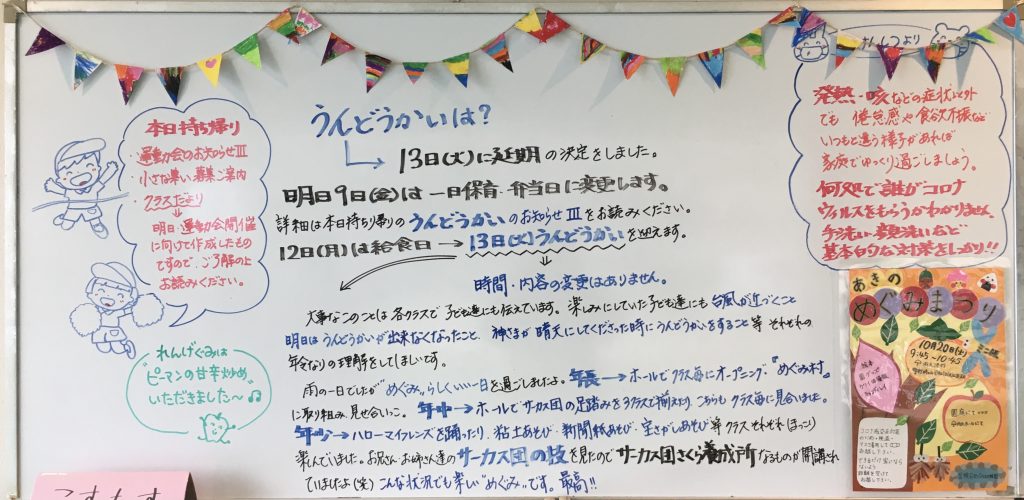 本日持ち帰り
・運動会のお知らせⅢ
・小さな集い募集ご案内
・クラスだより
明日・運動会開催
に向けて作成したもの
ですので、ご了解の上
お読みください。
れんげぐみは
"ピーマンの甘辛炒め"
いただきました〜♪
うんどうかいは?
13日(火)に延期の決定をしました。
明日9日(金)は一日保育・弁当日に変更します。
詳細は本日持ち帰りのうんどうかいのお知らせⅢをお読みください。
12日(月)は給食日→13日(火)うんどうかいを迎えます。
時間・内容の変更はありません。
大事なこのことは各クラスで子ども達にも伝えています。楽しみにしていた子ども達にも台風が近づくこと
明日はうんどうかいが出来なくなったこと、神さまが晴天にしてくださった時にうんどうかいをすること等 それぞれの
年令なりの理解をしてほしいです。
雨の一日でしたが"めぐみ"らしくいい一日を過ごしましたよ。年長→ホールでクラス毎にオープニング"めぐみ村"
に取り組み、見せ合いっこ。年中→ホールでサーカス団の足踏みを3クラスで揃えたり、こちらもクラス毎に見合いました。
年少→ハローマイフレンズを踊ったり、粘土あそび・新聞紙あそび・宝さがしあそび等クラスそれぞれほっこり
楽しんでいました。お兄さん・お姉さん達のサーカス団の技を見たのでサーカス団さくら養成所なるものが開講され
ていましたよ(笑)こんな状況でも楽しい"めぐみ"です。最高!!
発熱・咳などの症状以外
でも 倦怠感や食欲不振など
いつもと違う様子があれば
家庭でゆっくり過ごしましょう。
何処で誰がコロナ
ウィルスをもらうかわかりません。
手洗い・嗽洗いなど
基本的な対策をしっかり!!
あきの
めぐみまつり
ミニ版
10月20日(土)
9:45〜10:45